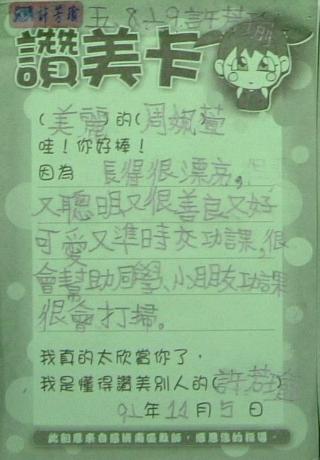 許芳瑜 五、8 19 許芳瑜
讚美卡
(美麗)的(周姵萱)
哇！你好棒！
因為 長得很漂亮，但
又聰明又很善良又好
可愛又準時交功課，很
會幫助同學、小朋友功課
很會打掃。
我真的太欣賞你了，
我是懂得讚美別人的(許芳瑜)
91年11月5日